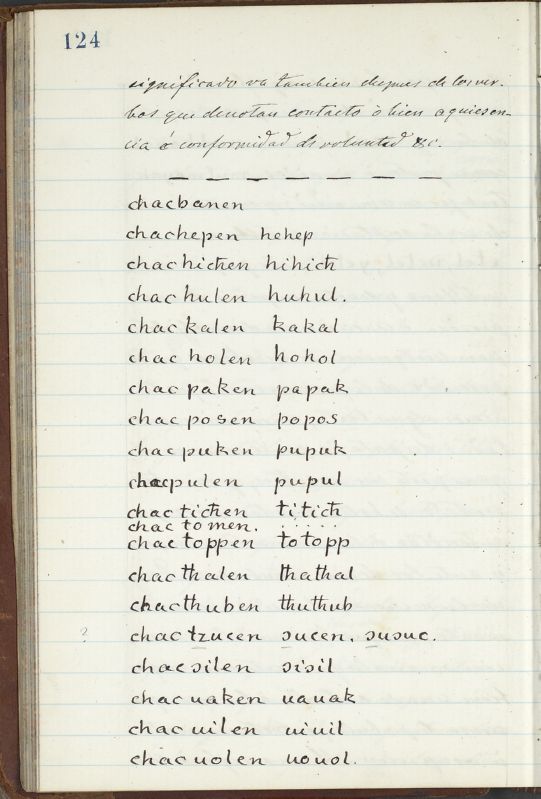 124
significado va tambien despues de los ver-
bos que denotan contacto ò bien aquiesen-
cia ó conformidad de voluntad &c.
— — — — — — —
chacbanen
chachepen hehep
chachichen hihich
chachulen huhul.
chackalen kakal
chacholen hohol
chacpaken papak
chacposen popos
chacpuken pupuk
chacpulen pupul
chactichen titich
chactomen. . . . . .
chactoppen totopp
chacthalen thathal
chacthuben thuthub
? chactzucen sucen. susuc.
chacsilen sisil
chacuaken uauak
chacuilen uiuil
chacuolen uouol.